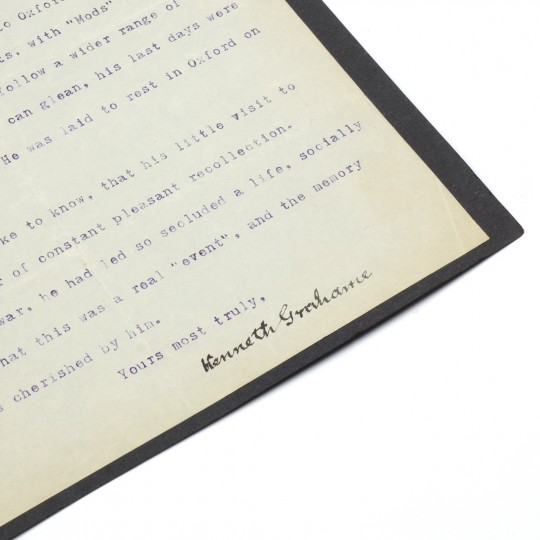 to Oxford
ts, with "Mods"
follow a wider range of
can glean, his last days were
He was laid to rest in Oxford on
ke to know, that his little visit to
r of constant pleasant recollection.
war, he had led so secluded a life, socially
hat this was a real "event", and the memory
s cherished by him.
Yours most truly,
Kenneth Grahame